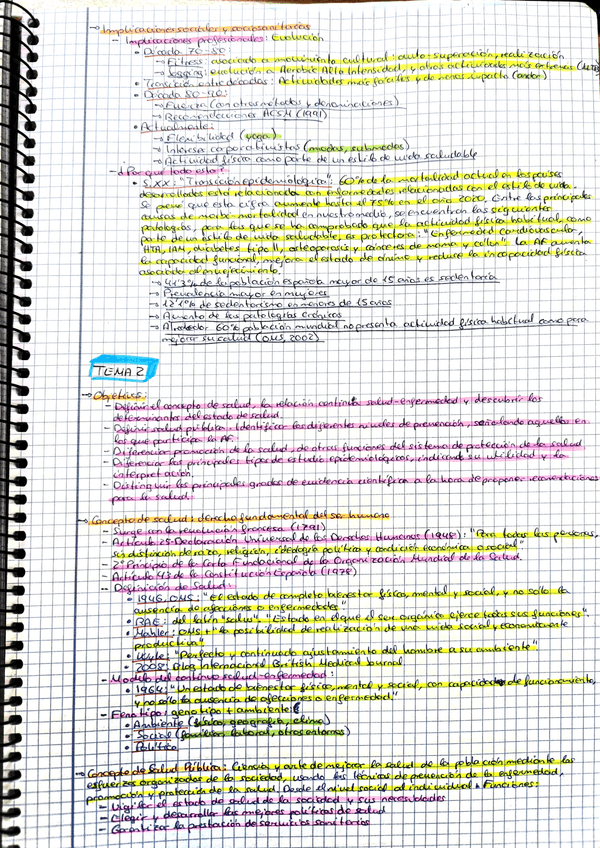 → Implicaciones sociales y sociosanitarias
- Implicaciones profesionales: Evolución
• Década 70-80:
→ Fitness: asociado a movimiento cultural: auto-superación, realización
→ Jogging: evolución a Aerobic Alto Intensidad, y otras actividades más extremas
• Transición entre décadas: Actividades más fáciles y de menos impacto (andar)
• Década 80-90:
→ Fuerza (con otros métodos y denominaciones)
→ Recomendaciones ACSM (1991)
• Actualmente:
→ Flexibilidad (yoga)
→ Interesa corporativistas (modas, submodas)
→ Actividad física como parte de un estilo de vida saludable
- ¿Por qué todo esto?
• S.XX: "Transición epidemiológica": 60% de la mortalidad actual en los países
desarrollados está relacionada con enfermedades relacionadas con el estilo de vida.
Se prevé que esta cifra aumente hasta el 75% en el año 2020. Entre las principales
causas de morbi-mortalidad en nuestro medio, se encuentran las siguientes
patologías, para las que se ha comprobado que la actividad física habitual, como
parte de un estilo de vida saludable, es protectora: "Enfermedad cardiovascular,
HTA, IAM, diabetes tipo II, osteoporosis y cánceres de mama y colon". La AF aumenta
la capacidad funcional, mejora el estado de ánimo y reduce la incapacidad física
asociada al envejecimiento.
→ 41'3% de la población española mayor de 15 años es sedentaria
→ Prevalencia mayor en mujeres
→ 12'1% de sedentarismo en menores de 15 años
→ Aumento de las patologías crónicas
→ Alrededor 60% población mundial no presenta actividad física habitual como para
mejorar su salud (OMS, 2002)
TEMA 2
→ Objetivos:
- Definir el concepto de salud, la relación continua salud-enfermedad y descubrir los
determinantes del estado de salud.
- Definir salud pública. Identificar los diferentes niveles de prevención, señalando aquellos en
los que participa la AF.
- Diferenciar promoción de la salud, de otras funciones del sistema de protección de la salud
- Diferenciar los principales tipos de estudio epidemiológicos, indicando su utilidad y la
interpretación.
- Distinguir los principales grados de evidencia científica a la hora de proponer recomendaciones
para la salud.
→ Concepto de salud: derecho fundamental del ser humano
- Surge con la revolución francesa (1791)
- Artículo 25-Declaración Universal de los Derechos Humanos (1948): "Para todas las personas,
sin distinción de raza, religión, ideología política y condición económica o social"
- 2º Principio de la Carta Fundacional de la Organización Mundial de la Salud.
- Artículo 43 de la Constitución Española (1978)
- Definición de Salud:
• 1946, OMS: "el estado de completo bienestar físico, mental y social, y no sólo la
ausencia de afecciones o enfermedades"
• RAE: del latín "salus". "Estado en el que el ser orgánico ejerce todas sus funciones".
• Mahler: OMS + "la posibilidad de realización de una vida social y económicamente
productiva"
• Wyle: "Perfecto y continuado ajustamiento del hombre a su ambiente"
• 2008: Blog internacional British Medical Journal
- Modelo del continuo salud-enfermedad:
• 1964: "Un estado de bienestar físico, mental y social, con capacidad de funcionamiento,
y no sólo la ausencia de afecciones o enfermedad."
- Fenotipo: genotipo + ambiente:
• Ambiente (físico, geografía, clima)
• Social (familiar, laboral, otros entornos)
• Político
→ Concepto de Salud Pública: Ciencia y arte de mejorar la salud de la población mediante los
esfuerzos organizados de la sociedad, usando las técnicas de prevención de la enfermedad,
promoción y protección de la salud. Desde el nivel social al individual. Funciones:
- Vigilar el estado de salud de la sociedad y sus necesidades
- Elegir y desarrollar las mejores políticas de salud
- Garantizar la prestación de servicios sanitarios